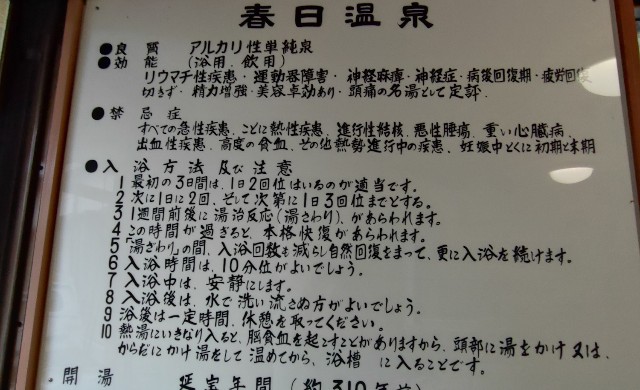 春日温泉
●良質 アルカリ性単純泉
●効能 (浴用、飲用)
リウマチ性疾患・運動器障害・神経麻痺・神経症・病後回復期・疲労回復
切きず・精力増強・美容卓効あり・頭痛の名湯として定評.
●禁忌症
すべての急性疾患.ことに熱性疾患.進行性結核.悪性腫瘍.重い心臓病.
出血性疾患.高度の貧血.その他熱勢進行中の疾患.妊娠中とくに初期と末期
●入浴方法及び注意
1 最初の3日間は、1日2回位はいるのが適当です。
2 次に1日に2回、そして次第に1日3回位までとする。
3 1週間前後に湯治反応(湯さわり)、があらわれます。
4 この時間が過ぎると、本格快復があらわれます。
5 「湯ざわり」の間、入浴回数も減らし自然回復をまって、更に入浴を続けます。
6 入浴時間は、10分位がよいでしょう。
7 入浴中は、安静にします。
8 入浴後は、水で洗い流さぬ方がよいでしょう。
9 浴後は一定時間、休憩を取ってください。
10 熱湯にいきなり入ると、脳貧血を起こすことがありますから、頭部に湯をかけ又は、
からだにかけ湯をして温めてから、浴槽に入ることです。
開湯 延宝年間(約310年前)